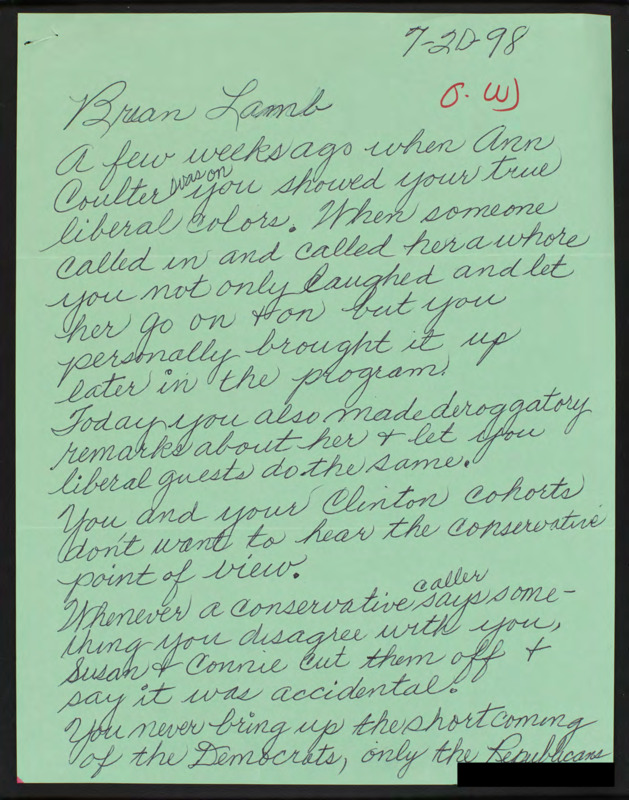 7-20-98
Brian Lamb
A few weeks ago when Ann
Coulter was on you showed your true
liberal colors. When someone
called in and called her a whore
you not only laughed and let
her go on & on but you
personally brought it up
later in the program.
Today you also made deroggatory
remarks about her & let you
liberal guests do the same.
You and your Clinton cohorts
don't want to hear the conservative
point of view.
Whenever a conservative caller says some-
thing you disagree with you,
Susan & Connie cut them off &
say it was accidental.
You never bring up the short coming
of the Democrats, only the Republicans